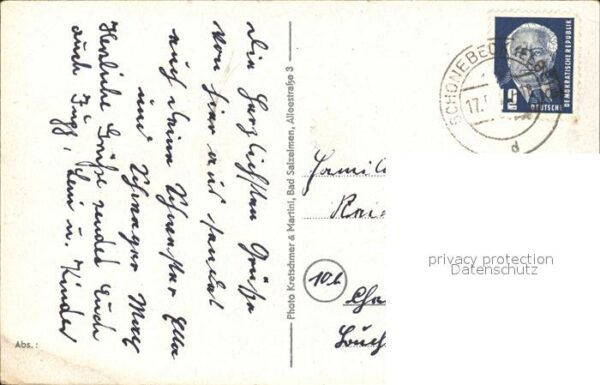 Die herzlichsten Grüße
von hier aus sendet
euch eure Schwester Ella
und Schwager Max
Herzliche Grüße sendet Euch
auch Ingg, Leni u. Kinder
Abs.:
Photo Kretschmer & Martini, Bad Salzelmen, Alleestraße 3
DEUTSCHE DEMOKRATISCHE REPUBLIK
SCHÖNEBECK
17.
d
Famil
10b
privacy protection
Datenschutz